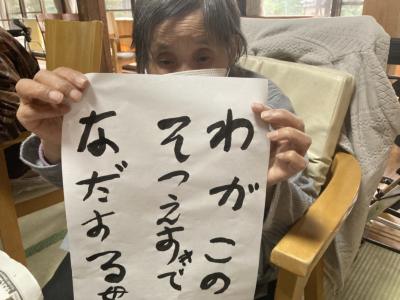 わがこの
そつえすきで
なだする